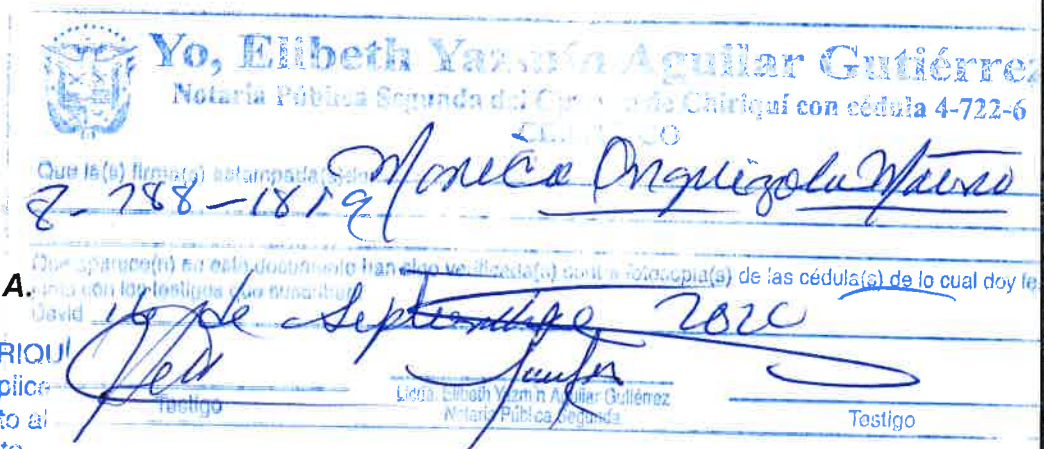 Yo, Elibeth Yazmín Aguilar Gutiérrez
Notaria Pública Segunda del Circuito de Chiriquí con cédula 4-722-6
CERTIFICO
Que la(s) firma(s) estampada(s) de Monica
8-788-1819
Que aparece(n) en este documento han sido verificada(s) contra fotocopia(s) de las cédula(s) de lo cual doy fe
junto con los testigos que suscriben
A.
David 16 de Septiembre 2020
RIQUI
plice
Testigo
Licda. Elibeth Yazmín Aguilar Gutiérrez
Notaria Pública Segunda
Testigo
to al